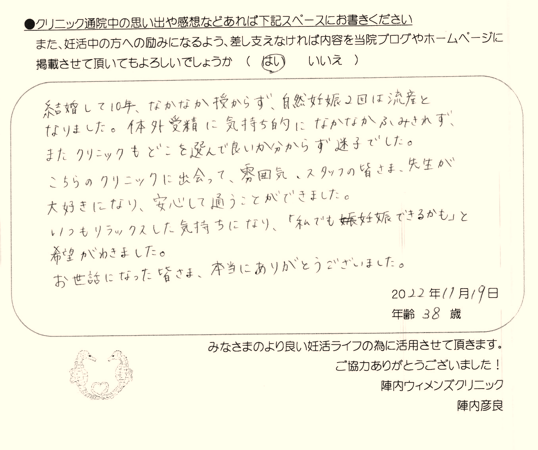 ●クリニック通院中の思い出や感想などあれば下記スペースにお書きください
また、妊活中の方への励みになるよう、差し支えなければ内容を当院ブログやホームページに
掲載させて頂いてもよろしいでしょうか ( はい いいえ )
結婚して10年、なかなか授からず、自然妊娠2回は流産と
なりました。体外受精に気持ち的になかなかふみきれず、
またクリニックもどこを選んで良いか分からず迷子でした。
こちらのクリニックに出会って、雰囲気、スタッフの皆さま、先生が
大好きになり、安心して通うことができました。
いつもリラックスした気持ちになり、「私でも妊娠できるかも」と
希望がわきました。
お世話になった皆さま、本当にありがとうございました。
2022年11月19日
年齢 38 歳
みなさまのより良い妊活ライフの為に活用させて頂きます。
ご協力ありがとうございました!
陣内ウィメンズクリニック
陣内彦良